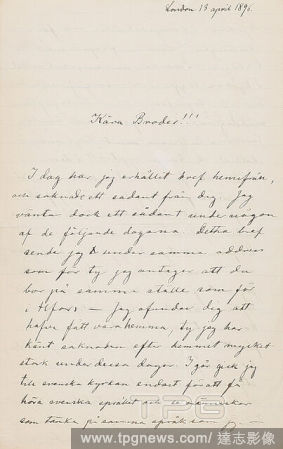 London 13 april 1896.
Kära Broder!!!
I dag har jag erhållit bref hemifrån,
och saknade ett sådant från dig. Jag
väntar dock ett sådant under någon
af de följande dagarna. Detta bref
sende jag under samma address
som för ty jag antager att du
bor på samma ställe som för
i Hfors — Jag afundar dig att
hafva fått vara hemma, ty jag har
känt saknaden efter hemmet mycket
stark under dessa dagar. I går gick jag
till svenska kyrkan endast för att få
höra svenska språket och se människor
som tänka på samma språk som
TPG
www.tpgnews.com/ 達志影像